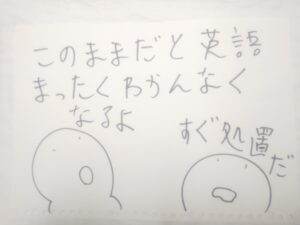 このままだと英語
まったくわかんなく
なるよ
すぐ処置だ